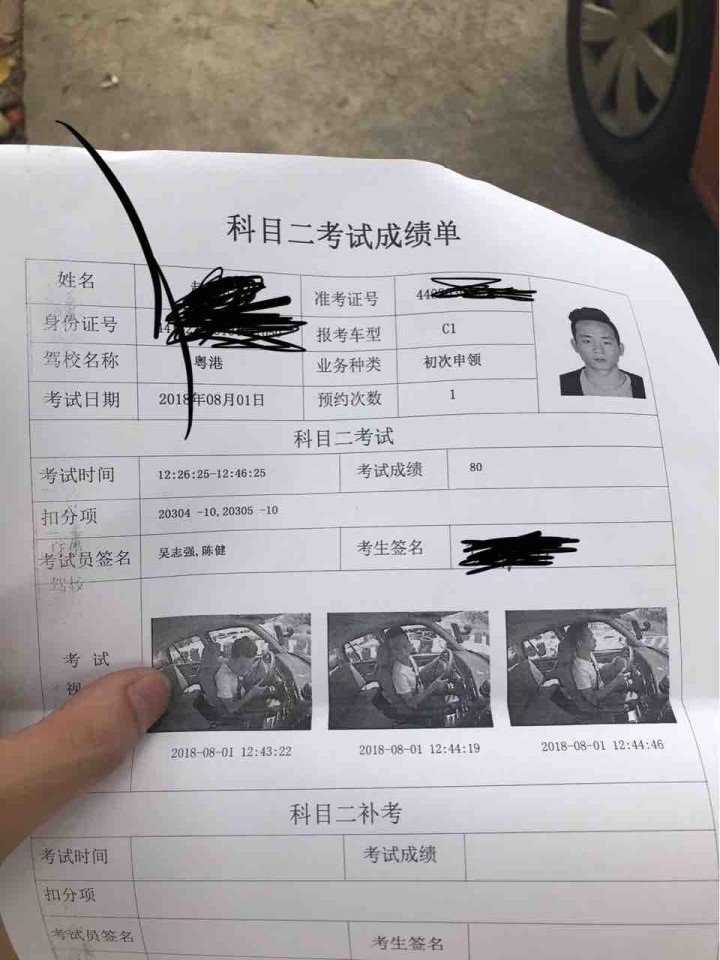 科目二考试成绩单
姓名 准考证号
身份证号 报考车型 C1
驾校名称 粤港 业务种类 初次申领
考试日期 2018年08月01日 预约次数 1
科目二考试
考试时间 12:26:25-12:46:25 考试成绩 80
扣分项 20304 -10,20305 -10
考试员签名 吴志强,陈健 考生签名
考试
2018-08-01 12:43:22 2018-08-01 12:44:19 2018-08-01 12:44:46
科目二补考
考试时间 考试成绩
扣分项
考试员签名 考生签名